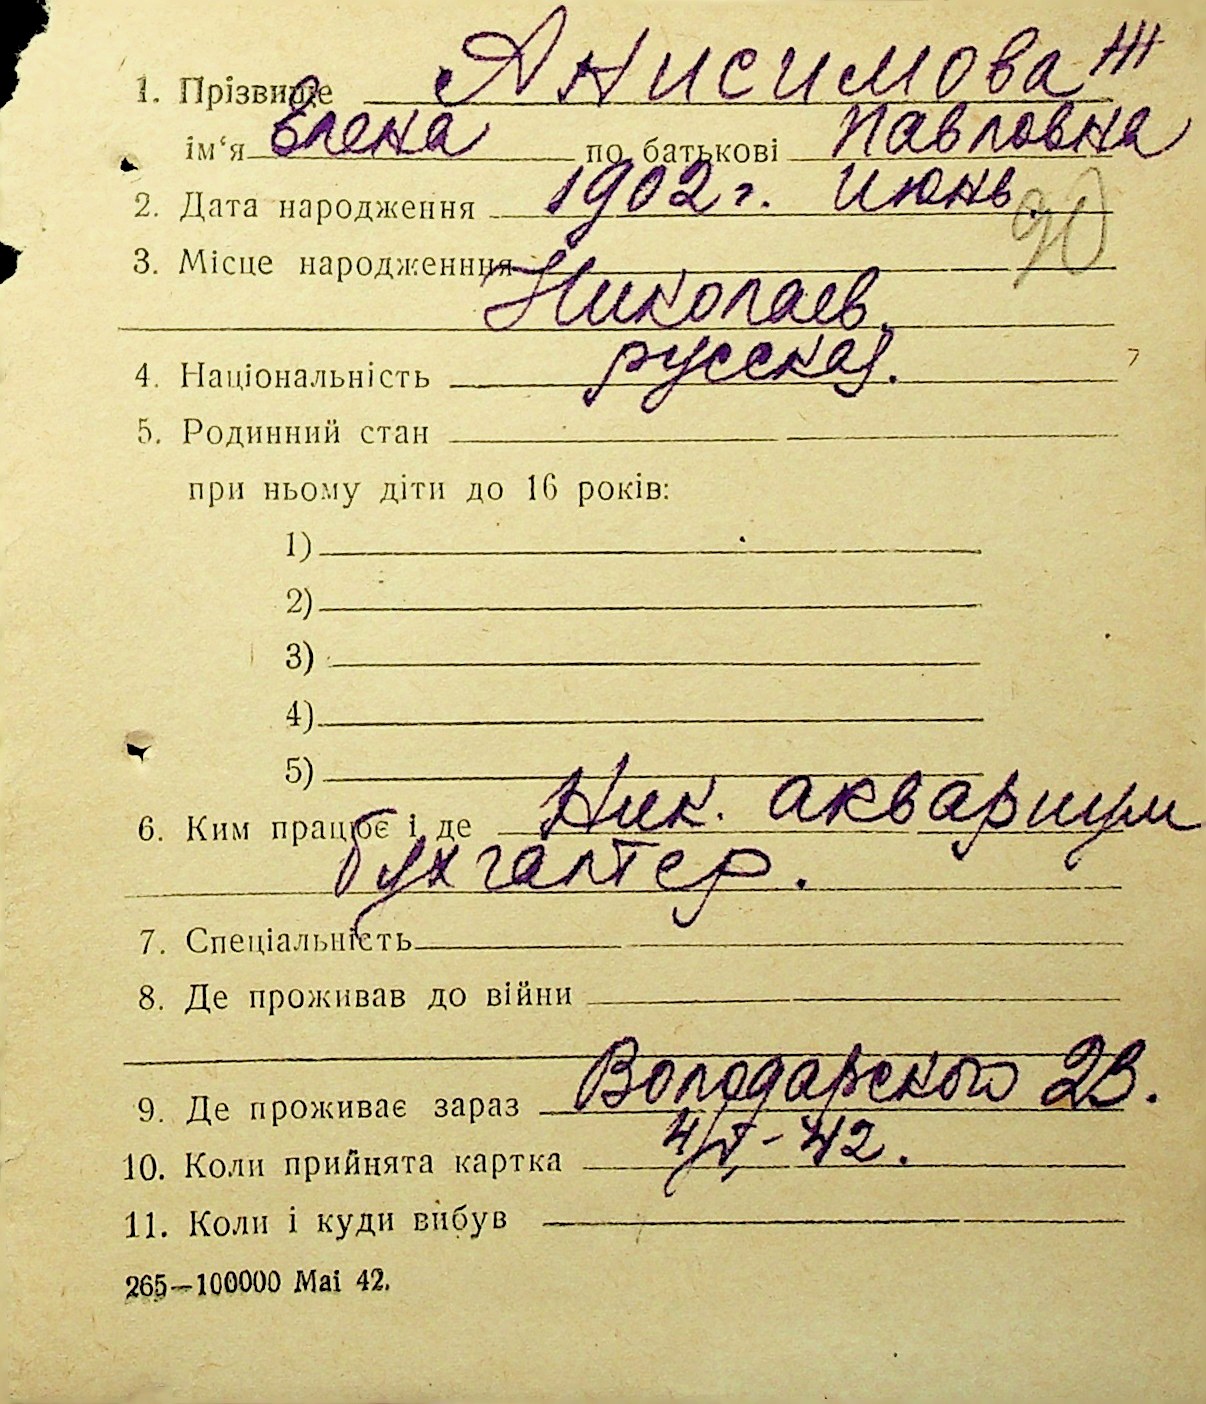 1. Прізвище Анисимова Ж
ім‘я Елена по батькові Павловна
2. Дата народження 1902 г. Июнь
3. Місце народженння
Николаев.
4. Національність русская.
5. Родинний стан
при ньому діти до 16 років:
1)
2)
3)
4)
5)
6. Ким працює і де Ник. аквариум
бухгалтер.
7. Спеціальність
8. Де проживав до війни
9. Де проживає зараз Володарского
10. Коли прийнята картка
11. Коли і куди вибув
265—100000 Mai 42.